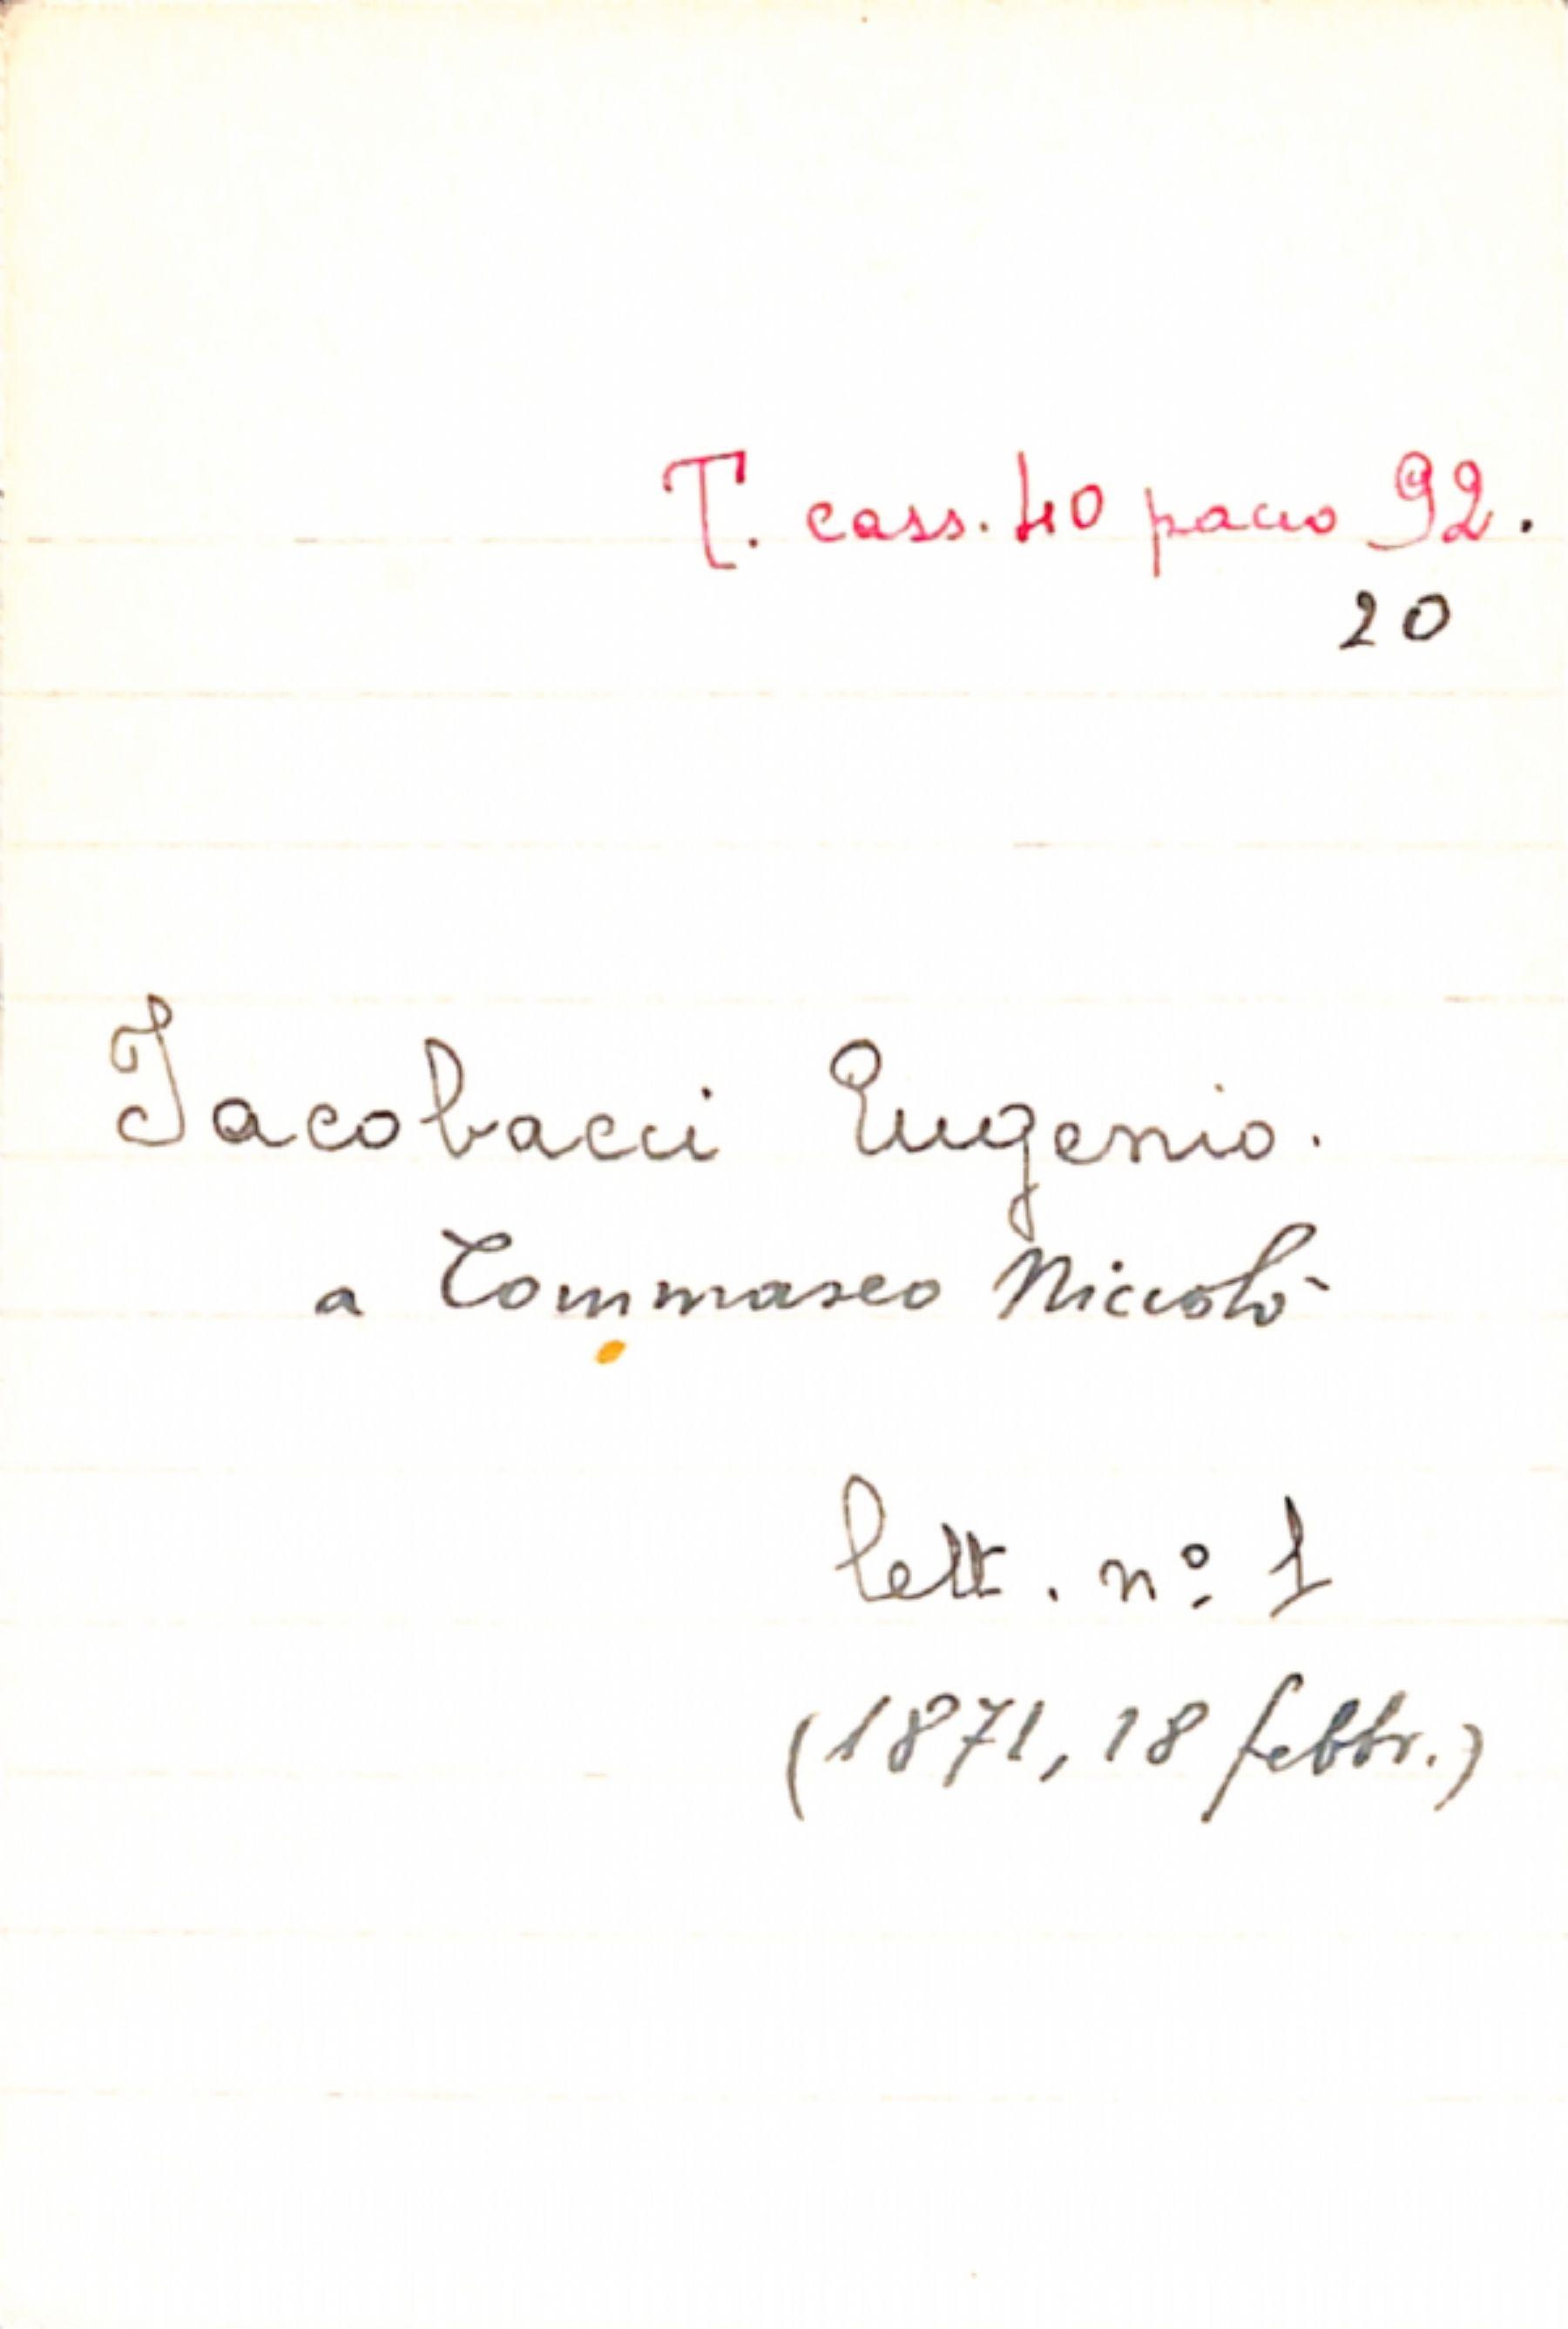 T. cass. 40 pacco 92.
20
Jacobacci Eugenio.
a Tommaseo Niccolò
lett. nº 1
(1871, 18 febbr.)